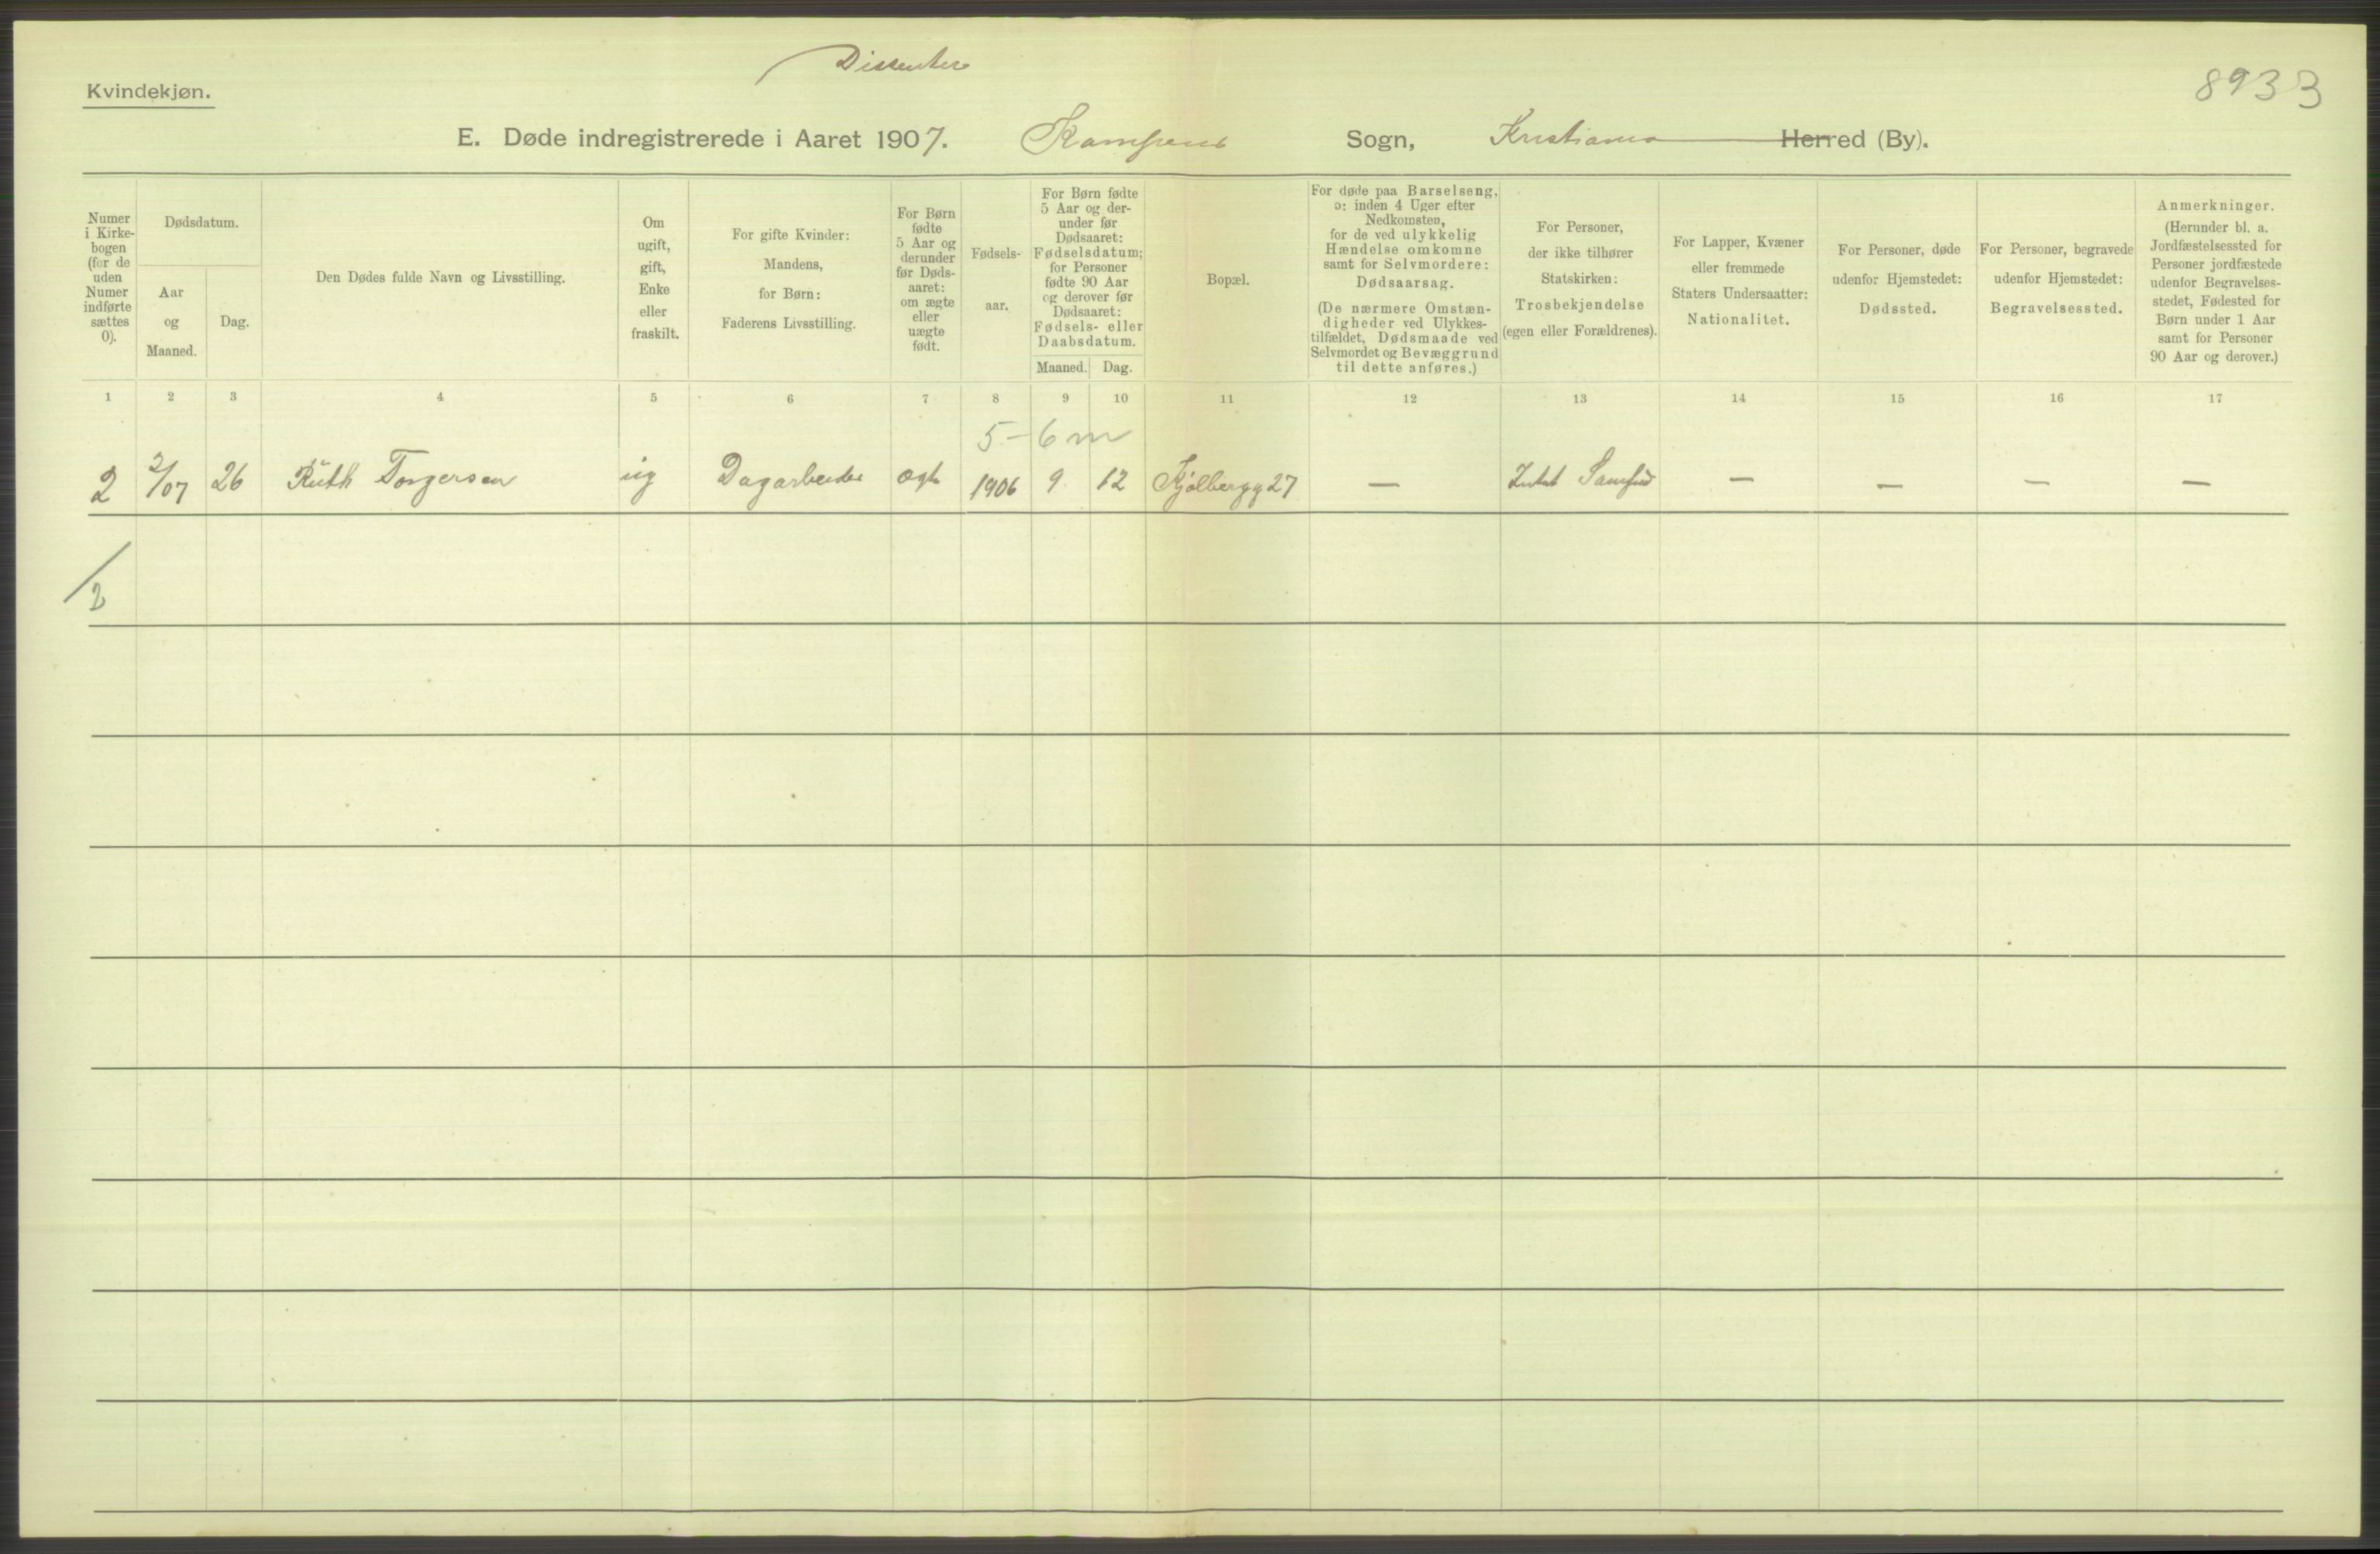 Dissenter
Kvindekjøn.
8933
E. Døde indregistrerede i Aaret 1907. Kampens Sogn, Kristiania Herred (By).
Numer i Kirkebogen (for de uden Numer indførte sættes 0).
Dødsdatum.
Aar og Maaned.
Dag.
Den Dødes fulde Navn og Livsstilling.
Om ugift, gift, Enke eller fraskilt.
For gifte Kvinder: Mandens, for Børn: Faderens Livsstilling.
For Børn fødte 5 Aar og derunder før Dødsaaret: om ægte eller uægte født.
Fødselsaar.
For Børn fødte 5 Aar og derunder før Dødsaaret: Fødselsdatum; for Personer fødte 90 Aar og derover før Dødsaaret: Fødsels- eller Daabsdatum.
Maaned. Dag.
Bopæl.
For døde paa Barselseng, ɔ: inden 4 Uger efter Nedkomsten, for de ved ulykkelig Hændelse omkomne samt for Selvmordere: Dødsaarsag.
(De nærmere Omstændigheder ved Ulykkestilfældet, Dødsmaade ved Selvmordet og Bevæggrund til dette anføres.)
For Personer, der ikke tilhører Statskirken: Trosbekjendelse (egen eller Forældrenes).
For Lapper, Kvæner eller fremmede Staters Undersaatter: Nationalitet.
For Personer, døde udenfor Hjemstedet: Dødssted.
For Personer, begravede udenfor Hjemstedet: Begravelsessted.
Anmerkninger.
(Herunder bl. a. Jordfæstelsessted for Personer jordfæstede udenfor Begravelsesstedet, Fødested for Børn under 1 Aar samt for Personer 90 Aar og derover.)
1 2 3 4 5 6 7 8 9 10 11 12 13 14 15 16 17
5-6 m
2 2/07 26 Ruth Torgersen ug Dagarbeider ægte 1906 9 12 Kjølbergg 27 — Intet Samfund — — — —
/2